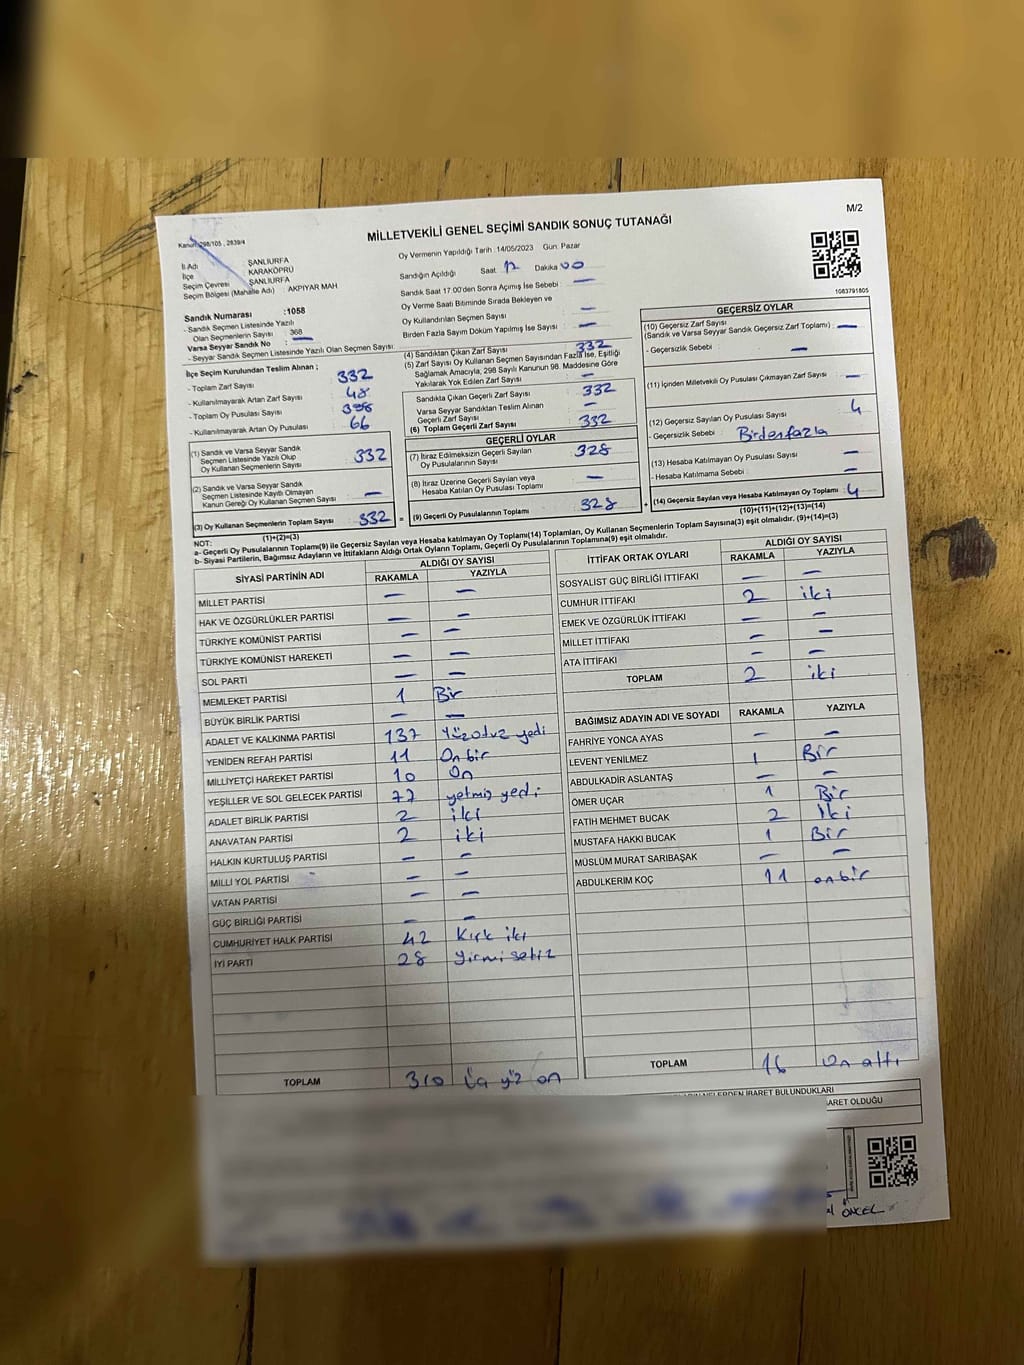 M/2
MİLLETVEKİLİ GENEL SEÇİMİ SANDIK SONUÇ TUTANAĞI
Kanun: 298/105 , 2839/4
İl Adı ŞANLIURFA
İlçe KARAKÖPRÜ
Seçim Çevresi ŞANLIURFA
Seçim Bölgesi (Mahalle Adı) : AKPIYAR MAH
Sandık Numarası :1058
- Sandık Seçmen Listesinde Yazılı
Olan Seçmenlerin Sayısı : 368
Varsa Seyyar Sandık No : —
- Seyyar Sandık Seçmen Listesinde Yazılı Olan Seçmen Sayısı:
İlçe Seçim Kurulundan Teslim Alınan ;
- Toplam Zarf Sayısı 332
- Kullanılmayarak Artan Zarf Sayısı 48
- Toplam Oy Pusulası Sayısı 398
- Kullanılmayarak Artan Oy Pusulası 66
(1) Sandık ve Varsa Seyyar Sandık
Seçmen Listesinde Yazılı Olup
Oy Kullanan Seçmenlerin Sayısı 332
(2) Sandık ve Varsa Seyyar Sandık
Seçmen Listesinde Kayıtlı Olmayan
Kanun Gereği Oy Kullanan Seçmen Sayısı —
(3) Oy Kullanan Seçmenlerin Toplam Sayısı 332
(1)+(2)=(3)
Oy Vermenin Yapıldığı Tarih :14/05/2023 Gün: Pazar
Sandığın Açıldığı Saat 17 Dakika 00
Sandık Saat 17.00'den Sonra Açılmış İse Sebebi : —
Oy Verme Saati Bitiminde Sırada Bekleyen ve
Oy Kullandırılan Seçmen Sayısı : —
Birden Fazla Sayım Döküm Yapılmış İse Sayısı : —
(4) Sandıktan Çıkan Zarf Sayısı 332
(5) Zarf Sayısı Oy Kullanan Seçmen Sayısından Fazla İse, Eşitliği
Sağlamak Amacıyla, 298 Sayılı Kanunun 98. Maddesine Göre
Yakılarak Yok Edilen Zarf Sayısı —
Sandıkta Çıkan Geçerli Zarf Sayısı 332
Varsa Seyyar Sandıktan Teslim Alınan
Geçerli Zarf Sayısı —
(6) Toplam Geçerli Zarf Sayısı 332
GEÇERLİ OYLAR
(7) İtiraz Edilmeksizin Geçerli Sayılan
Oy Pusulalarının Sayısı 328
(8) İtiraz Üzerine Geçerli Sayılan veya
Hesaba Katılan Oy Pusulası Toplamı —
= (9) Geçerli Oy Pusulalarının Toplamı 328 +
1083791805
GEÇERSİZ OYLAR
(10) Geçersiz Zarf Sayısı
(Sandık ve Varsa Seyyar Sandık Geçersiz Zarf Toplamı) : —
- Geçersizlik Sebebi : —
(11) İçinden Milletvekili Oy Pusulası Çıkmayan Zarf Sayısı —
(12) Geçersiz Sayılan Oy Pusulası Sayısı 4
- Geçersizlik Sebebi : Birden fazla
(13) Hesaba Katılmayan Oy Pusulası Sayısı —
- Hesaba Katılmama Sebebi : —
(14) Geçersiz Sayılan veya Hesaba Katılmayan Oy Toplamı 4
(10)+(11)+(12)+(13)=(14)
NOT:
a- Geçerli Oy Pusulalarının Toplamı(9) ile Geçersiz Sayılan veya Hesaba katılmayan Oy Toplamı(14) Toplamları, Oy Kullanan Seçmenlerin Toplam Sayısına(3) eşit olmalıdır. (9)+(14)=(3)
b- Siyasi Partilerin, Bağımsız Adayların ve İttifakların Aldığı Ortak Oyların Toplamı, Geçerli Oy Pusulalarının Toplamına(9) eşit olmalıdır.
SİYASİ PARTİNİN ADI ALDIĞI OY SAYISI
RAKAMLA YAZIYLA
MİLLET PARTİSİ — —
HAK VE ÖZGÜRLÜKLER PARTİSİ — —
TÜRKİYE KOMÜNİST PARTİSİ — —
TÜRKİYE KOMÜNİST HAREKETİ — —
SOL PARTİ — —
MEMLEKET PARTİSİ 1 Bir
BÜYÜK BİRLİK PARTİSİ — —
ADALET VE KALKINMA PARTİSİ 137 Yüzotuz yedi
YENİDEN REFAH PARTİSİ 11 On bir
MİLLİYETÇİ HAREKET PARTİSİ 10 On
YEŞİLLER VE SOL GELECEK PARTİSİ 77 yetmiş yedi
ADALET BİRLİK PARTİSİ 2 iki
ANAVATAN PARTİSİ 2 iki
HALKIN KURTULUŞ PARTİSİ — —
MİLLİ YOL PARTİSİ — —
VATAN PARTİSİ — —
GÜÇ BİRLİĞİ PARTİSİ — —
CUMHURİYET HALK PARTİSİ 42 Kırk iki
İYİ PARTİ 28 yirmi sekiz
TOPLAM 310 üç yüz on
İTTİFAK ORTAK OYLARI ALDIĞI OY SAYISI
RAKAMLA YAZIYLA
SOSYALİST GÜÇ BİRLİĞİ İTTİFAKI — —
CUMHUR İTTİFAKI 2 iki
EMEK VE ÖZGÜRLÜK İTTİFAKI — —
MİLLET İTTİFAKI — —
ATA İTTİFAKI — —
TOPLAM 2 iki
BAĞIMSIZ ADAYIN ADI VE SOYADI RAKAMLA YAZIYLA
FAHRİYE YONCA AYAS — —
LEVENT YENİLMEZ 1 Bir
ABDULKADİR ASLANTAŞ — —
ÖMER UÇAR 1 Bir
FATİH MEHMET BUCAK 2 İki
MUSTAFA HAKKI BUCAK 1 Bir
MÜSLÜM MURAT SARIBAŞAK — —
ABDULKERİM KOÇ 11 onbir
TOPLAM 16 On altı
İBARET BULUNDUKLARI
ÖNCEL